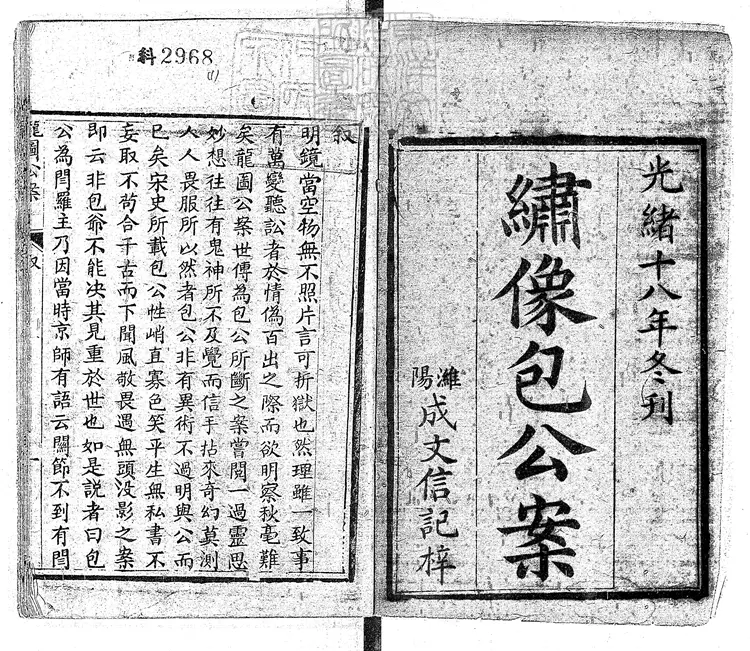 光緒十八年冬刊
繡像包公案
濰陽
成文信記梓
科2968
(1)
叙
明鏡當空物無不照片言可折獄也然理雖一致事
有萬變聽訟者於情偽百出之際而欲明察秋毫難
矣龍圖公案世傳為包公所斷之案嘗閱一過靈思
妙想往往有鬼神所不及覺而信手拈來奇幻莫測
人人畏服所以然者包公非有異術不過明與公而
已矣宋史所載包公性峭直寡色笑平生無私書不
妄取不苟合千古而下聞風敬畏遇無頭没影之案
即云非包爺不能决其見重於世也如是説者曰包
公為閆羅主乃因當時京師有語云關節不到有閆
龍圖公案
叙